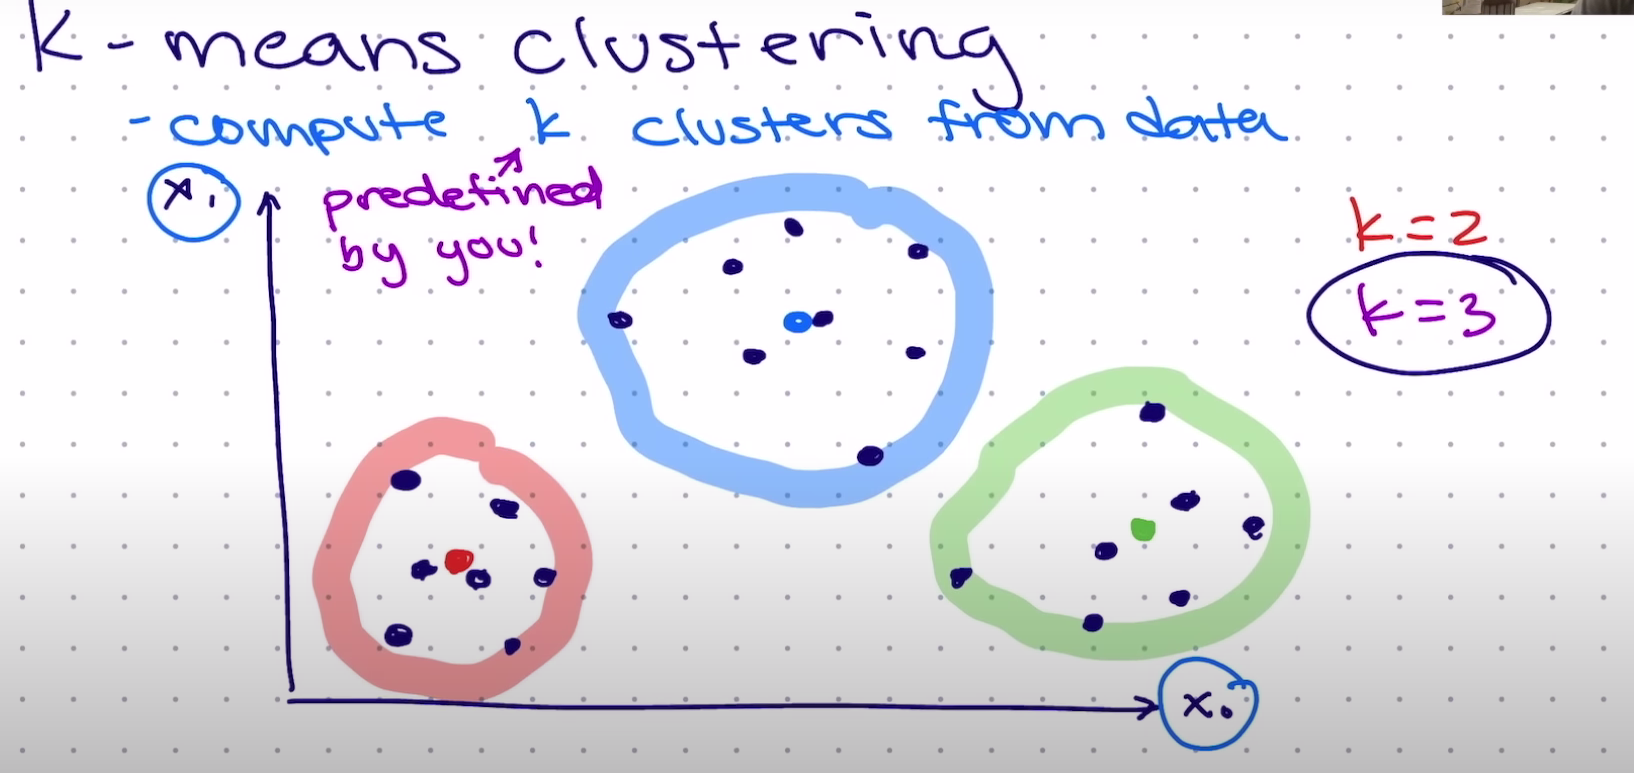 k-means clustering
- compute k clusters from data
x₁
predefined
by you!
k=2
k=3
x₀